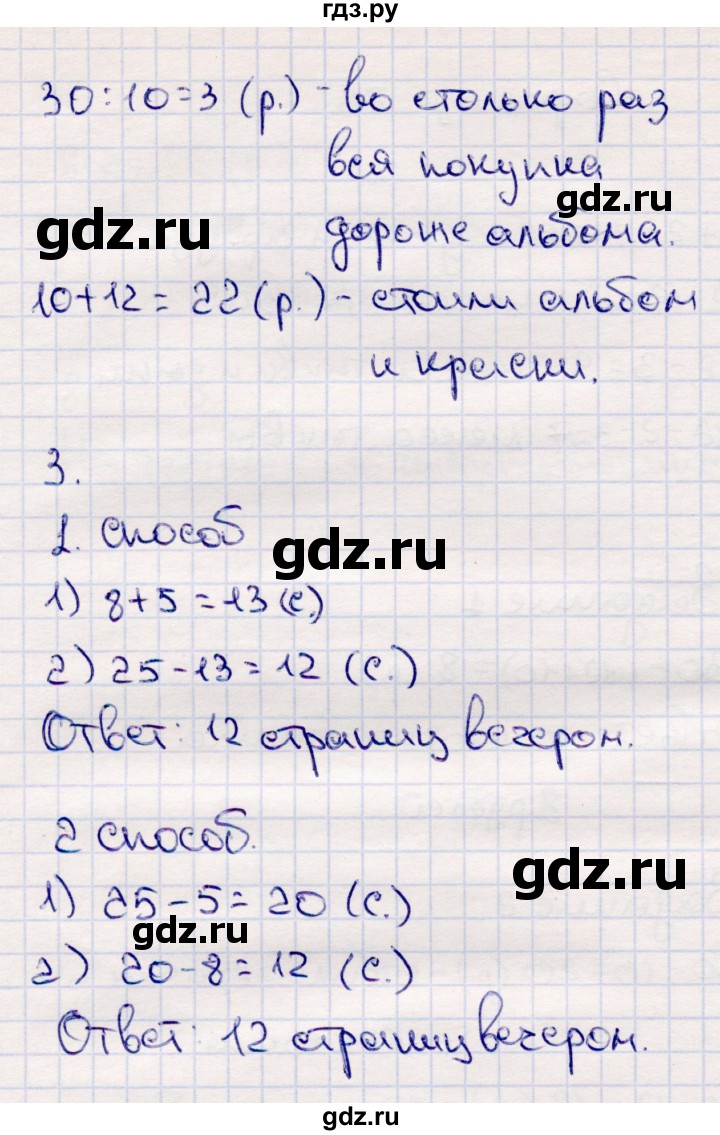 гдз.ру
30:10=3 (р.) - во столько раз
вся покупка
gdz.ru
gdz.ru
дороже альбома.
10+12=22(р.) - стоили альбом
и краски.
3.
1. способ
gdz.ru
1) 8+5=13(с.)
2) 25-13=12 (с.)
Ответ: 12 страниц вечером.
2 способ.
gdz.ru
1) 25-5=20 (с.)
gdz.ru
2) 20-8=12 (с.)
Ответ: 12 страниц вечером.
gdz.ru